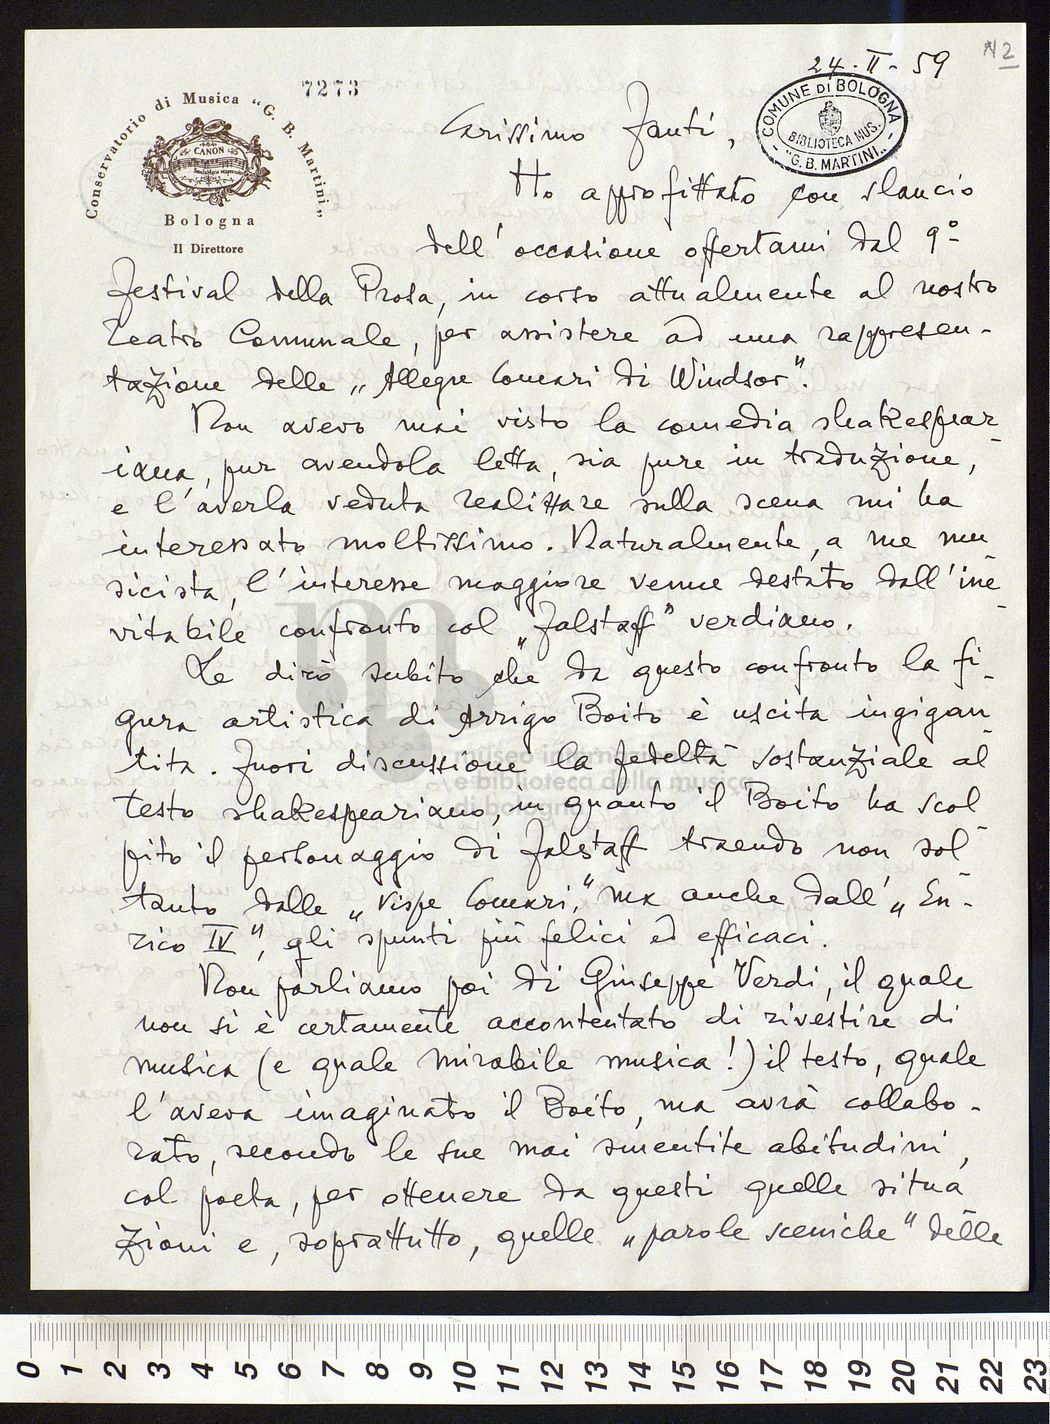 24-II-59
N 2
7273
Conservatorio di Musica "G. B. Martini"
CANON
Bologna
Il Direttore
COMUNE DI BOLOGNA
BIBLIOTECA MUS.
"G. B. MARTINI"
Carissimo Fanti,
Ho approfittato con slancio
dell'occasione offertami dal 9°
Festival della Prosa, in corso attualmente al nostro
Teatro Comunale, per assistere ad una rappresen-
tazione delle „Allegre Comari di Windsor".
Non avevo mai visto la comedia shakespear-
iana, pur avendola letta, sia pure in traduzione,
e l'averla veduta realizzare sulla scena mi ha
interessato moltissimo. Naturalmente, a me mu-
sicista, l'interesse maggiore venne destato dall'ine-
vitabile confronto col „Falstaff" verdiano.
Le dirò subito che da questo confronto la fi-
gura artistica di Arrigo Boito è uscita ingigan-
tita. Fuori discussione la fedeltà sostanziale al
testo shakespeariano, in quanto il Boito ha scol-
pito il personaggio di Falstaff traendo non sol-
tanto dalle „Vispe Comari," ma anche dall'„En-
rico IV", gli spunti più felici ed efficaci.
Non parliamo poi di Giuseppe Verdi, il quale
non si è certamente accontentato di rivestire di
musica (e quale mirabile musica!) il testo, quale
l'aveva imaginato il Boito, ma avrà collabo-
rato, secondo le sue mai smentite abitudini,
col poeta, per ottenere da questi quelle situa-
zioni e, soprattutto, quelle „parole sceniche" delle
museo internazionale
e biblioteca della musica
di bologna
0 1 2 3 4 5 6 7 8 9 10 11 12 13 14 15 16 17 18 19 20 21 22 23